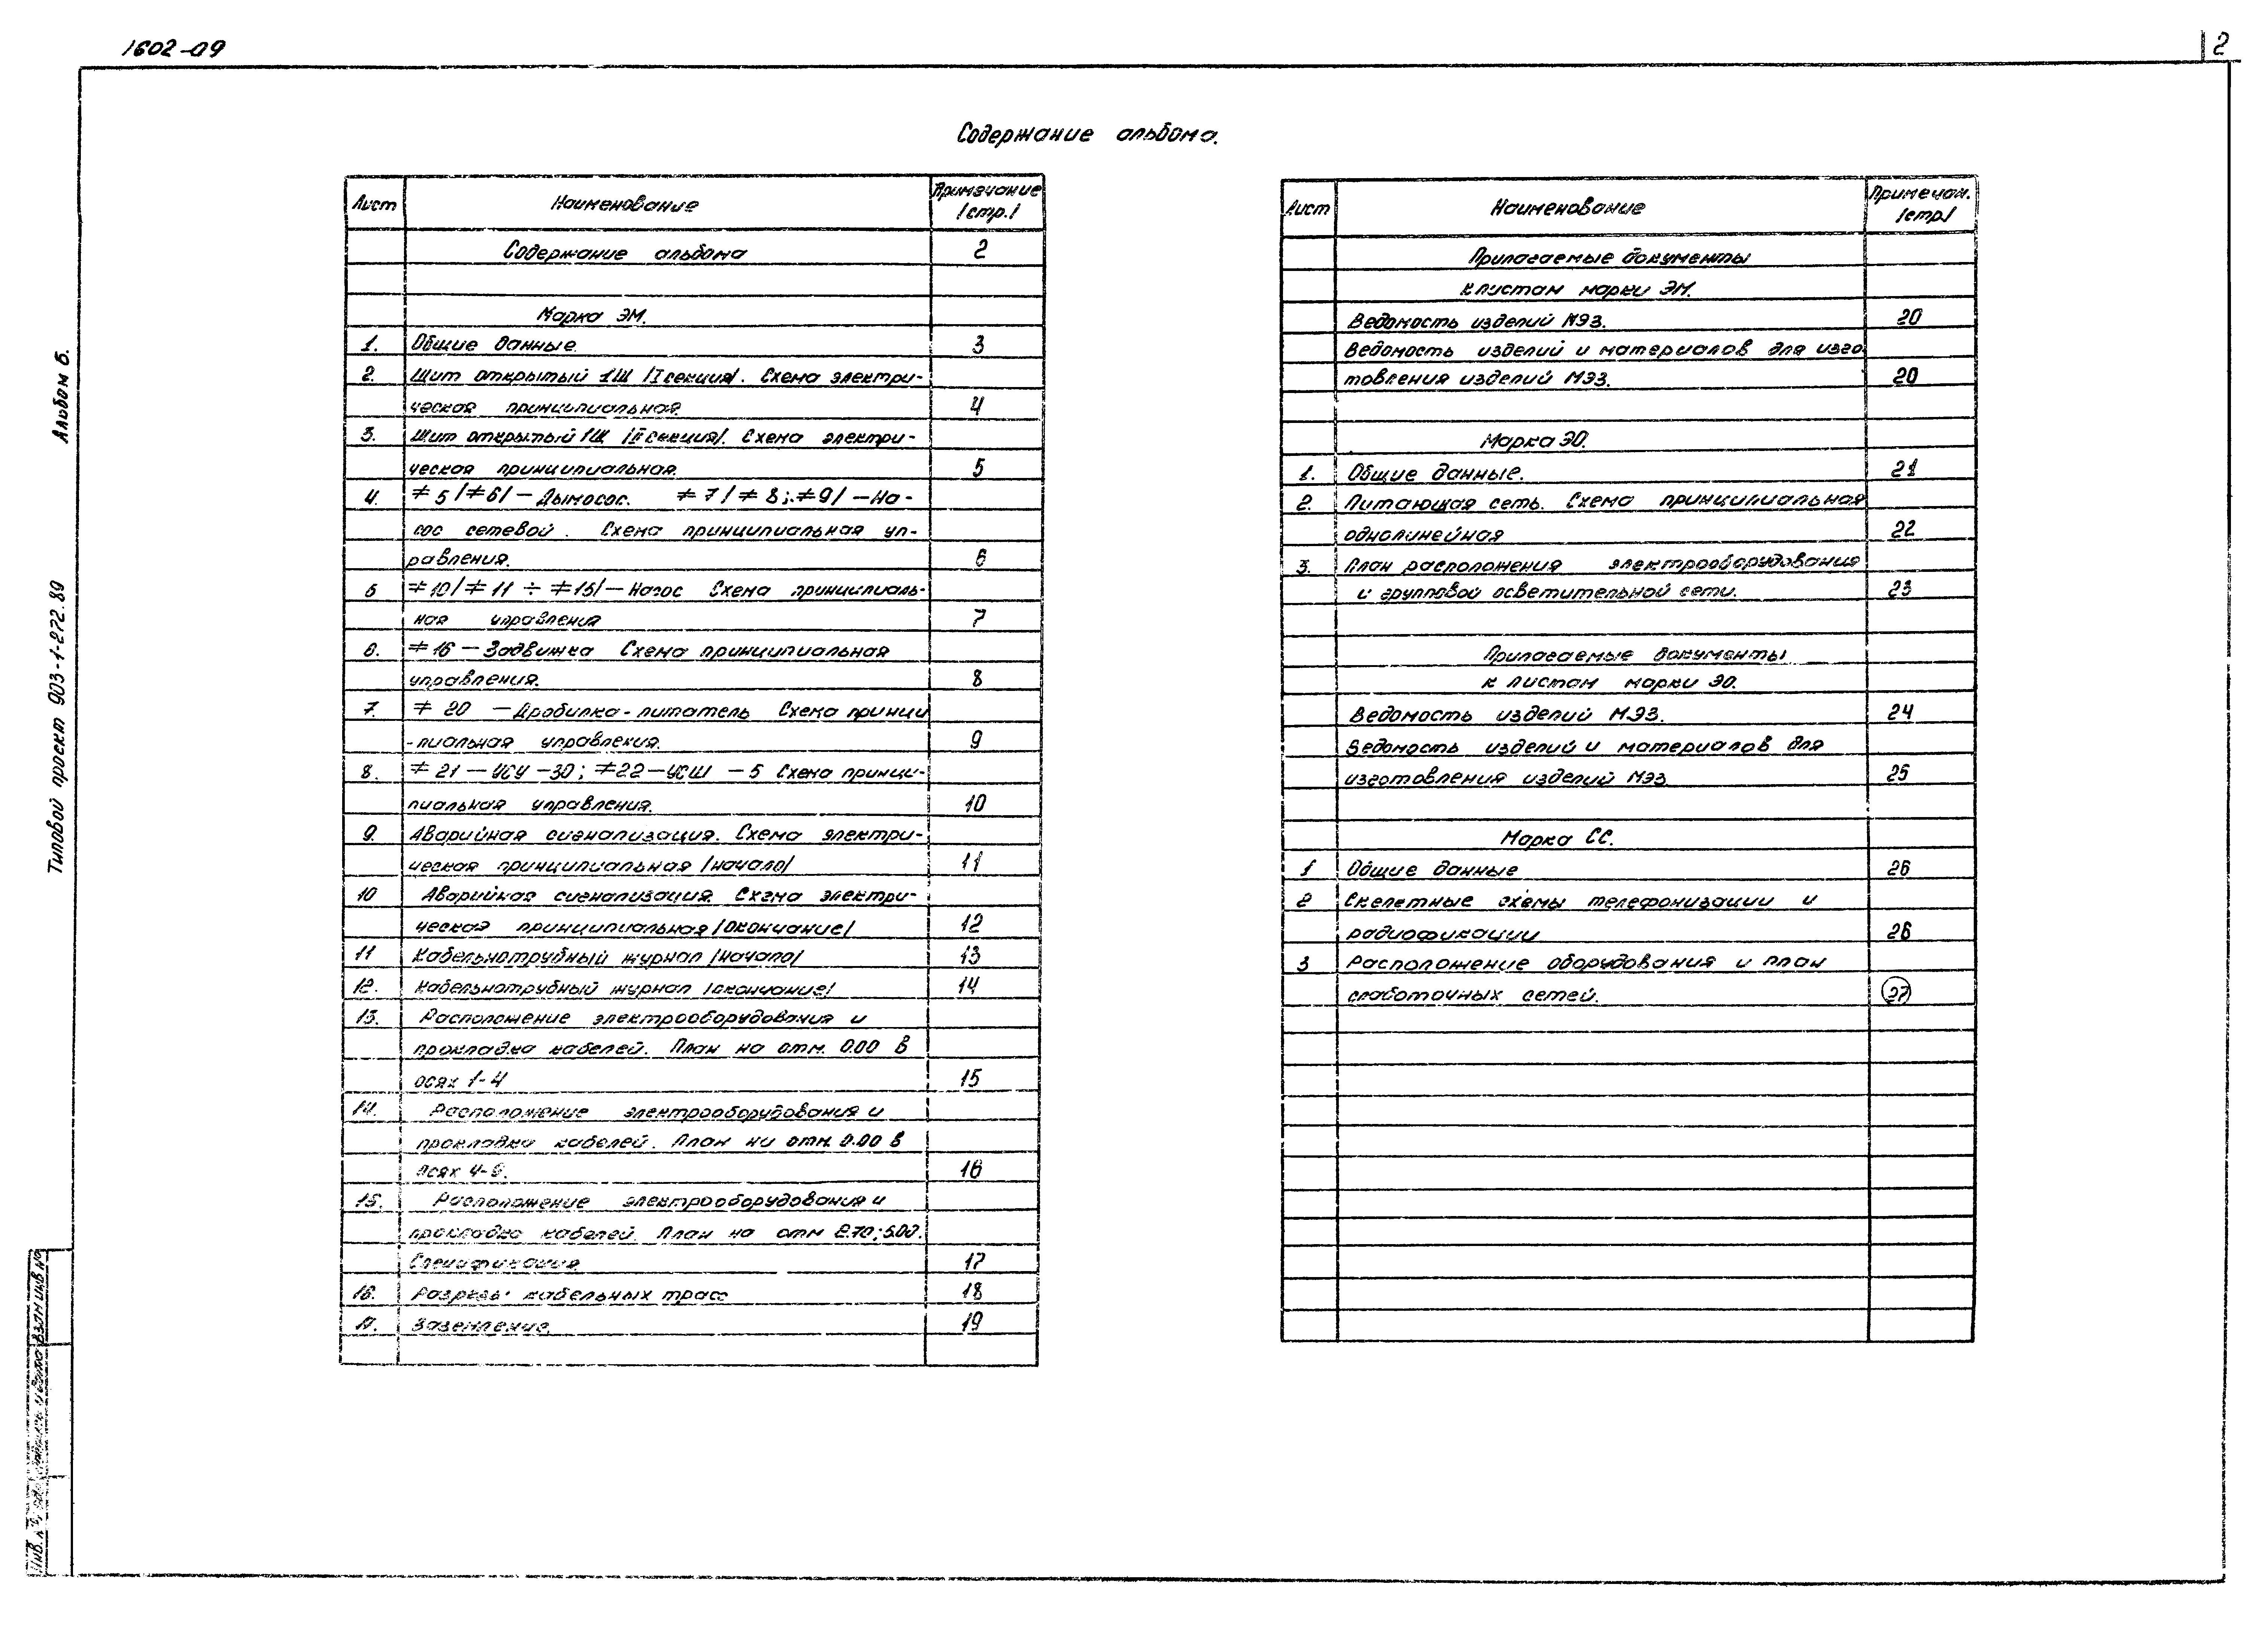 1602-09
2
Содержание альбома.
Альбом 6.
Типовой проект 903-1-272.89
Лист Наименование Примечание /стр./
Содержание альбома 2
Марка ЭМ.
1. Общие данные. 3
2. Щит открытый 1Щ /I секция/. Схема электри-
ческая принципиальная. 4
3. Щит открытый 1Щ /II секция/. Схема электри-
ческая принципиальная. 5
4. ≠5/≠6/ — Дымосос. ≠7/≠8;≠9/ — На-
сос сетевой. Схема принципиальная уп-
равления. 6
5 ≠10/≠11 ÷ ≠15/ — Насос Схема принципиаль-
ная управления 7
6. ≠16 — Задвижка Схема принципиальная
управления. 8
7. ≠ 20 — Дробилка-питатель Схема принци
-пиальная управления. 9
8. ≠ 21 — УСУ - 30; ≠22 — УСШ - 5 Схема принци-
пиальная управления. 10
9. Аварийная сигнализация. Схема электри-
ческая принципиальная /начало/ 11
10 Аварийная сигнализация. Схема электри-
ческая принципиальная /окончание/ 12
11 Кабельнотрубный журнал /начало/ 13
12. Кабельнотрубный журнал /окончание/ 14
13. Расположение электрооборудования и
прокладка кабелей. План на отм. 0.00 в
осях 1-4 15
14. Расположение электрооборудования и
прокладка кабелей. План на отм. 0.00 в
осях 4-6. 16
15. Расположение электрооборудования и
прокладка кабелей. План на отм 2.70; 5.00.
Спецификация 17
16. Разрезы кабельных трасс 18
17. Заземление. 19
Лист Наименование Примечан. /стр/
Прилагаемые документы
к листам марки ЭМ.
Ведомость изделий МЭЗ. 20
Ведомость изделий и материалов для изго
товления изделий МЭЗ. 20
Марка ЭО.
1. Общие данные. 21
2. Питающая сеть. Схема принципиальная
однолинейная 22
3. План расположения электрооборудования
и групповой осветительной сети. 23
Прилагаемые документы
к листам марки ЭО.
Ведомость изделий МЭЗ. 24
Ведомость изделий и материалов для
изготовления изделий МЭЗ 25
Марка СС.
1 Общие данные 26
2 Скелетные схемы телефонизации и
радиофикации 26
3 Расположение оборудования и план
слаботочных сетей. 27
Инв. №
Взам инв. №